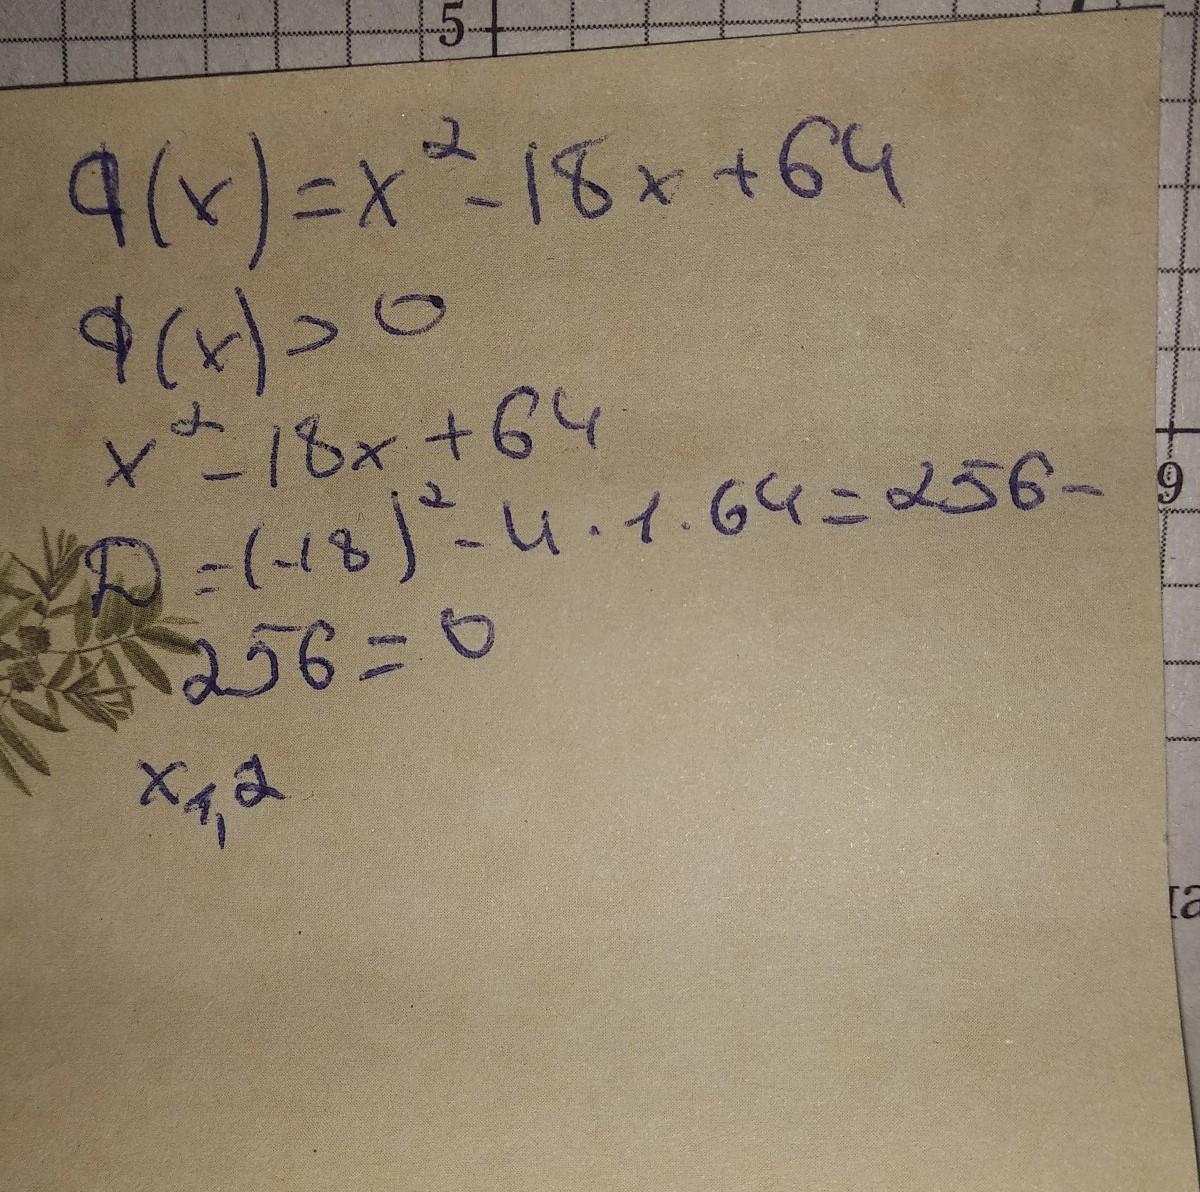 5
φ(x) = x² - 18x + 64
φ(x) > 0
x² - 18x + 64
D = (-18)² - 4 · 1 · 64 = 256 -
256 = 0
x₁,₂
9